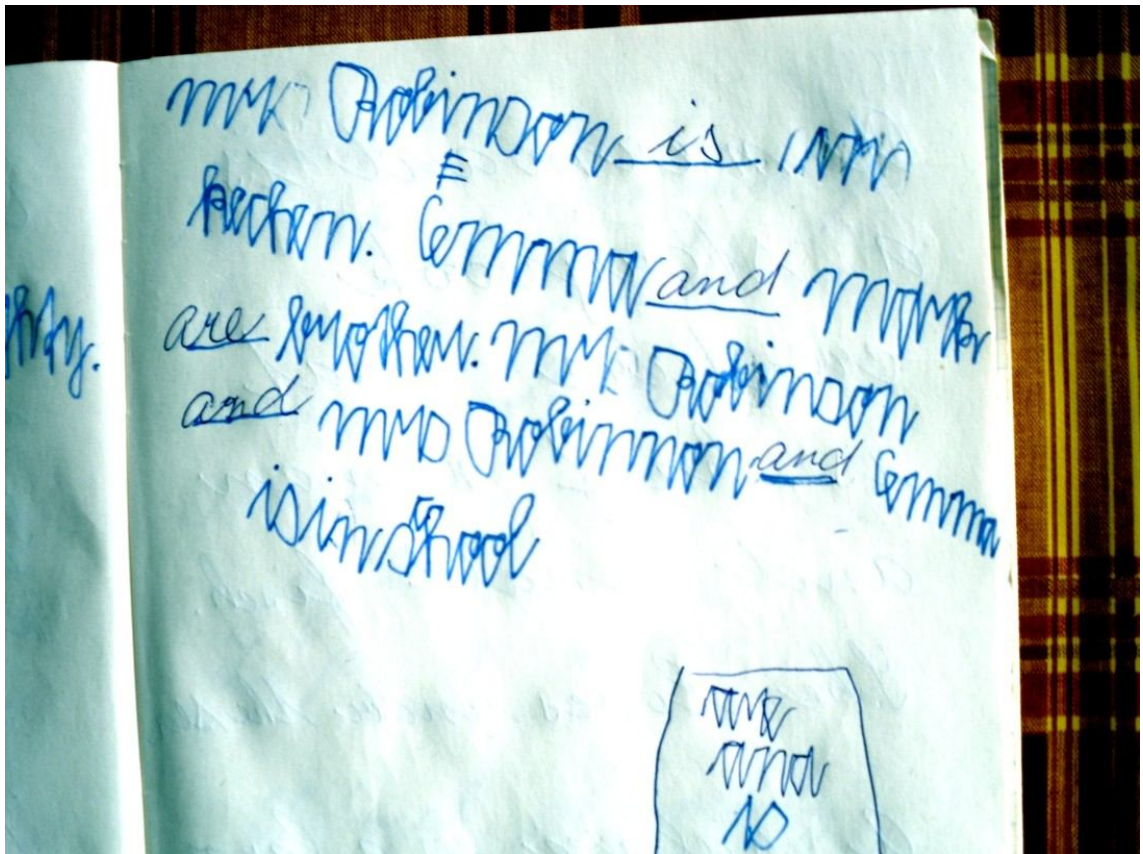 mrs Robinson is inn
kechen. Emma and mark
are brother. mr Robinson
and mrs Robinmon and Emma
is in school
are
and
is